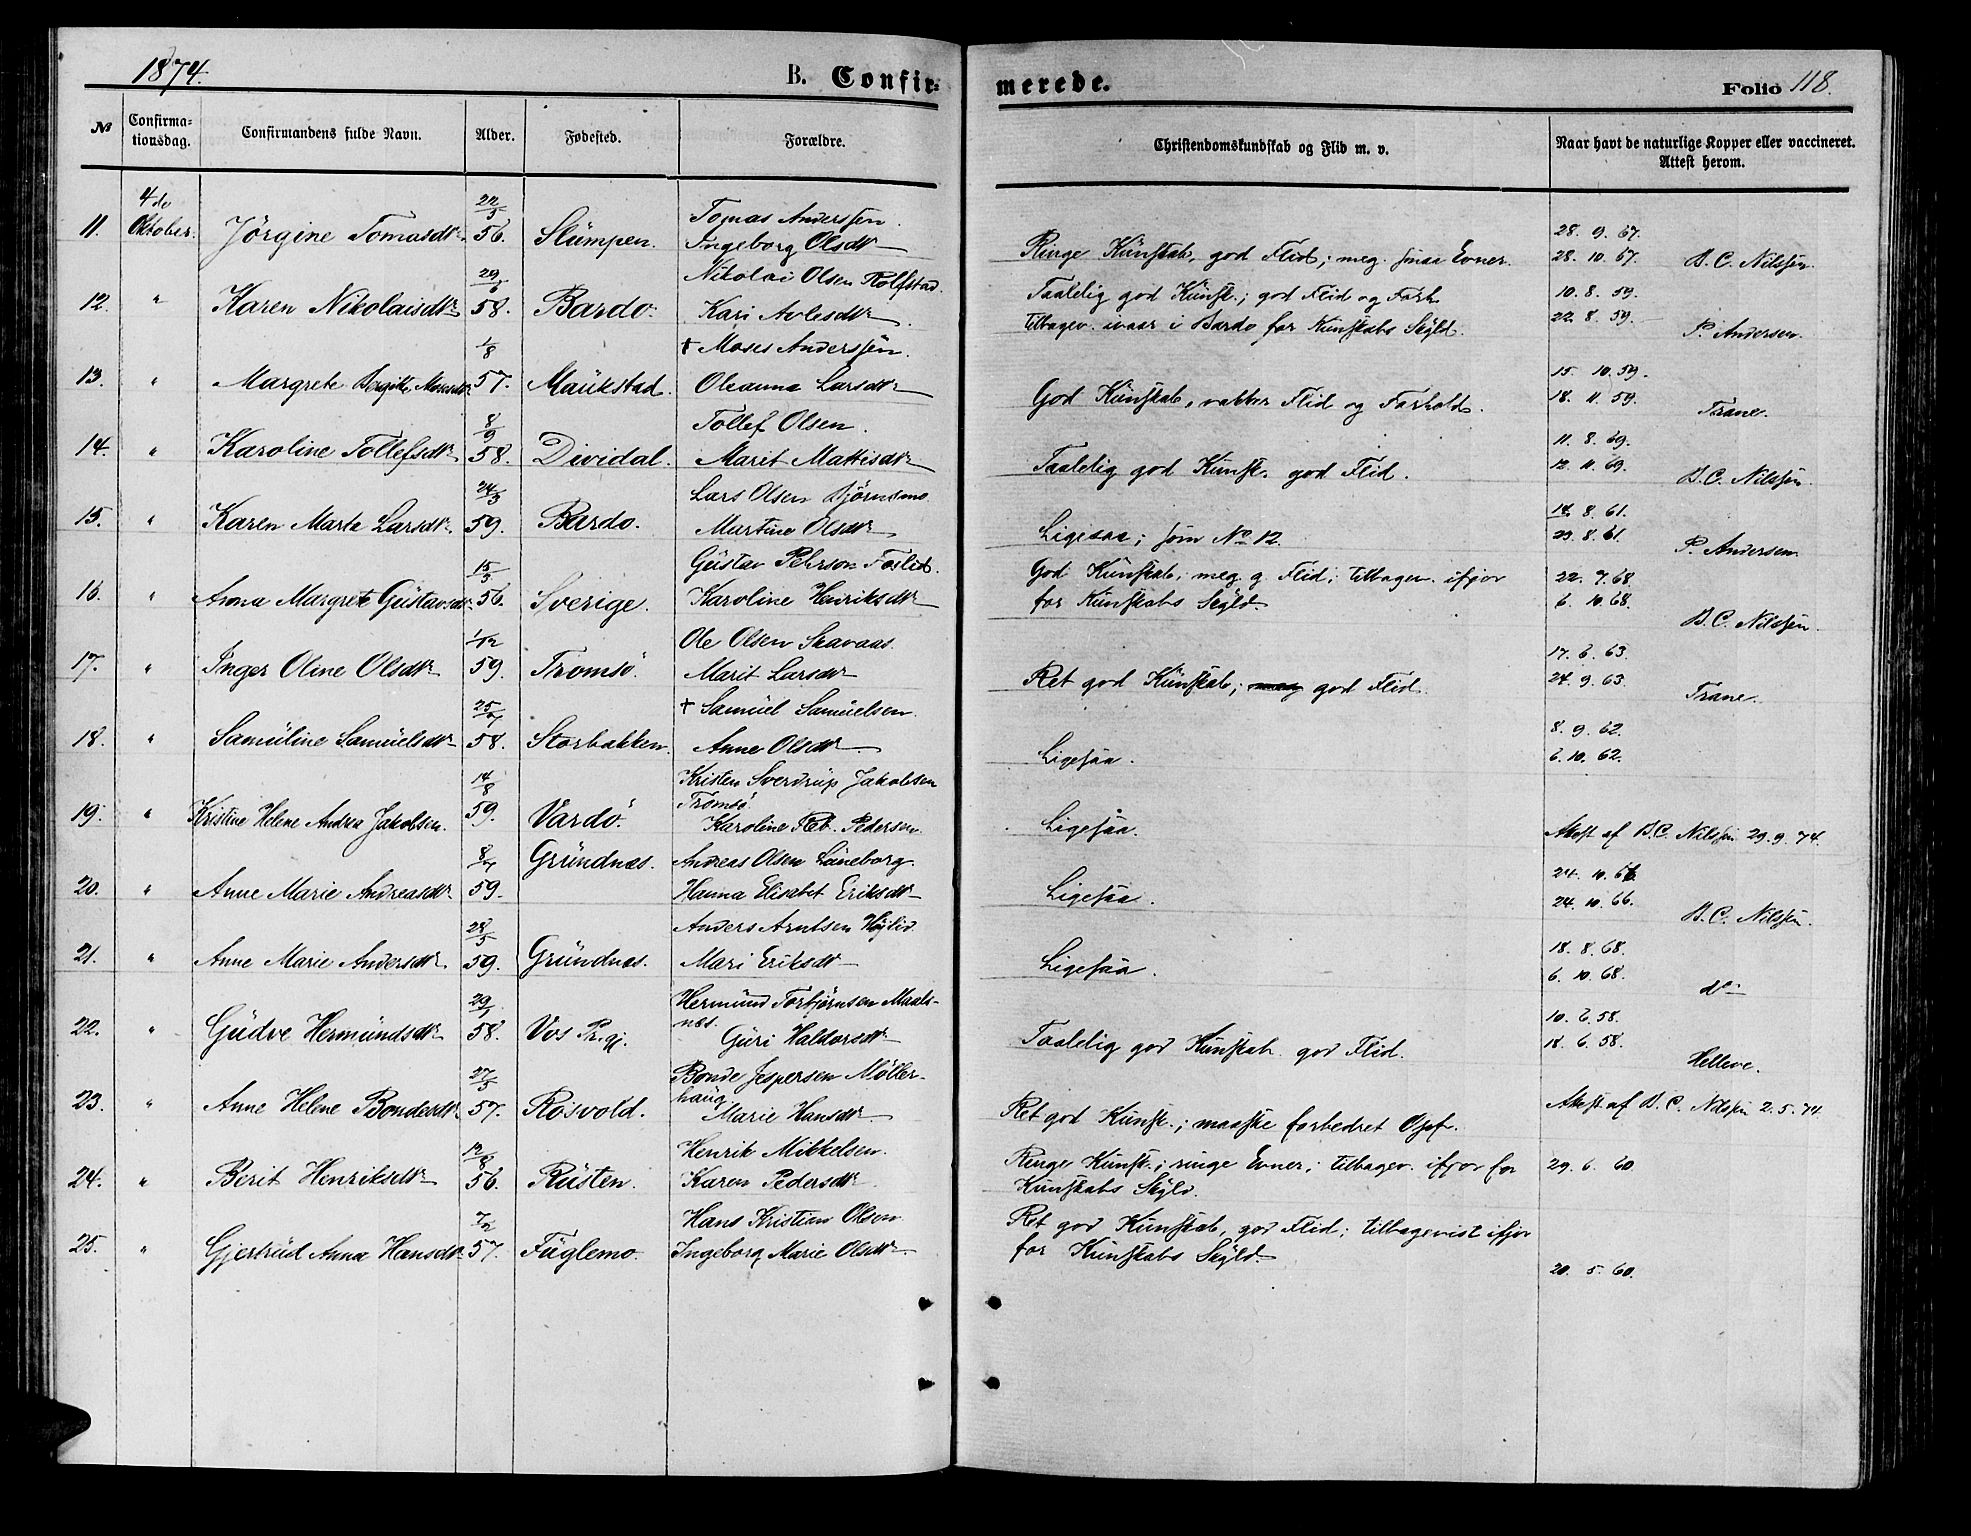 1874. B. Confir- merede. Folio 118.
№ Confirma- tionsdag. Confirmandens fulde Navn. Alder. Fødested. Forældre. Christendomskundskab og Flid m. v. Naar havt de naturlige Kopper eller vaccineret. Attest herom.
11. 4de Oktober. Jörgine Tomasdtr 22/5 56. Slümpen. Tomas Anderssen. Ingeborg Olsdtr Ringe Künskab, god Flid; meg. smaa Evner. 28. 9. 67. 28. 10. 67. B. C. Nilssen.
12. " Karen Nikolaisdtr 29/6 58. Bardo. Nikolai Olsen Rolfstad. Kari Avlesdtr Taalelig god Künsk.; god Flid og Forh. tilbagev. ivaar i Bardo for Künskabs Skyld. 10. 8. 59. 22. 8. 59. P. Andersen.
13. " Margrete Birgitte Mosesdtr 1/8 57. Maükstad. † Moses Anderssen. Oleanna Larsdtr God Künskab, vakker Flid og Forhold. 15. 10. 59. 18. 11. 59. Trane.
14. " Karoline Tollefsdtr 8/9 58. Dividal. Tollef Olsen. Marit Mattisdtr Taalelig god Künsk. god Flid. 11. 8. 69. 12. 11. 69. B. C. Nilssen.
15. " Karen Marta Larsdtr 24/3 59. Bardo. Lars Olsen Björnsmo. Martine Olsdtr Ligesaa; som No 12. 14. 8. 61. 29. 8. 61. P. Andersen.
16. " Anna Margrete Güstavsdtr 15/3 56. Sverige. Güstav Pehrson Foslid. Karoline Henriksdtr God Künskab; meg. g. Flid; tilbagev. ifjor for Künskabs Skyld. 22. 7. 68. 6. 10. 68. B. C. Nilssen.
17. " Inger Oline Olsdtr 1/12 59. Tromsö. Ole Olsen Skavaas. Marit Larsdtr Ret god Künskab; meg god Flid. 17. 6. 63. 24. 9. 63. Trane.
18. " Samüline Samüelsdtr 25/7 58. Storbakken. † Samüel Samüelsen. Anne Olsdtr Ligesaa. 8. 9. 62. 6. 10. 62.
19. " Kristine Helene Andrea Jakobsen. 14/8 59. Vardö. Kristen Sverdrüp Jakobsen Tromsö. Karoline Reb. Pedersen. Ligesaa. Attest af B. C. Nilssen 29. 9. 74.
20. " Anne Marie Andreasdtr 8/7 59. Gründnæs. Andreas Olsen Lüneborg. Hanna Elisabet Eriksdtr Ligesaa. 24. 10. 66 24. 10. 66. B. C. Nilssen.
21. " Anne Marie Andersdtr 28/5 59. Gründnæs. Anders Arntsen Högliv. Mari Eriksdtr Ligesaa. 18. 8. 68. 6. 10. 68. do
22. " Güdve Hermündsdtr 29/1 58. Vos Pr.gj. Hermünd Torbjörnsen Maals- næs. Güri Haldorsdtr Taalelig god Künskab. god Flid. 10. 6. 58. 18. 6. 58. Helleve.
23. " Anne Helene Bondesdtr 27/3 57. Rosvold. Bonde Jespersen Möller- haüg Marie Hansdtr Ret god Künsk.; maaske forbedret Opf. Attest af B. C. Nilssen 2. 5. 74.
24. " Berit Henriksdtr 12/8 56. Rüsten. Henrik Mikkelsen. Karen Pedersdtr Ringe Künsk.; ringe Evner; tilbagev. ifjor for Künskabs Skyld. 29. 6. 60
25. " Gjertrüd Anna Hansdtr 7/2 57. Füglemo. Hans Kristian Olsen Ingeborg Marie Olsdtr Ret god Künskab, god Flid; tilbagevist ifjor for Künskabs Skyld. 20. 5. 60.